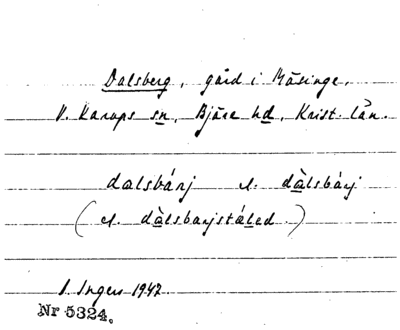 Dalsberg, gård i Mäsinge,
V. Karups sn, Bjäre hd, Krist. län.
dalsbárj el. dàlsbárj
(el. dàlsbarjstáled)
I. Ingers 1942.
Nr 5324.